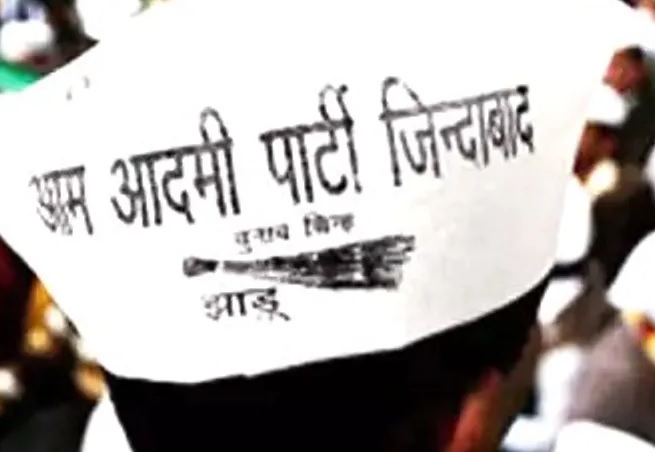 आम आदमी पार्टी जिन्दाबाद
चुनाव चिन्ह
झाड़ू